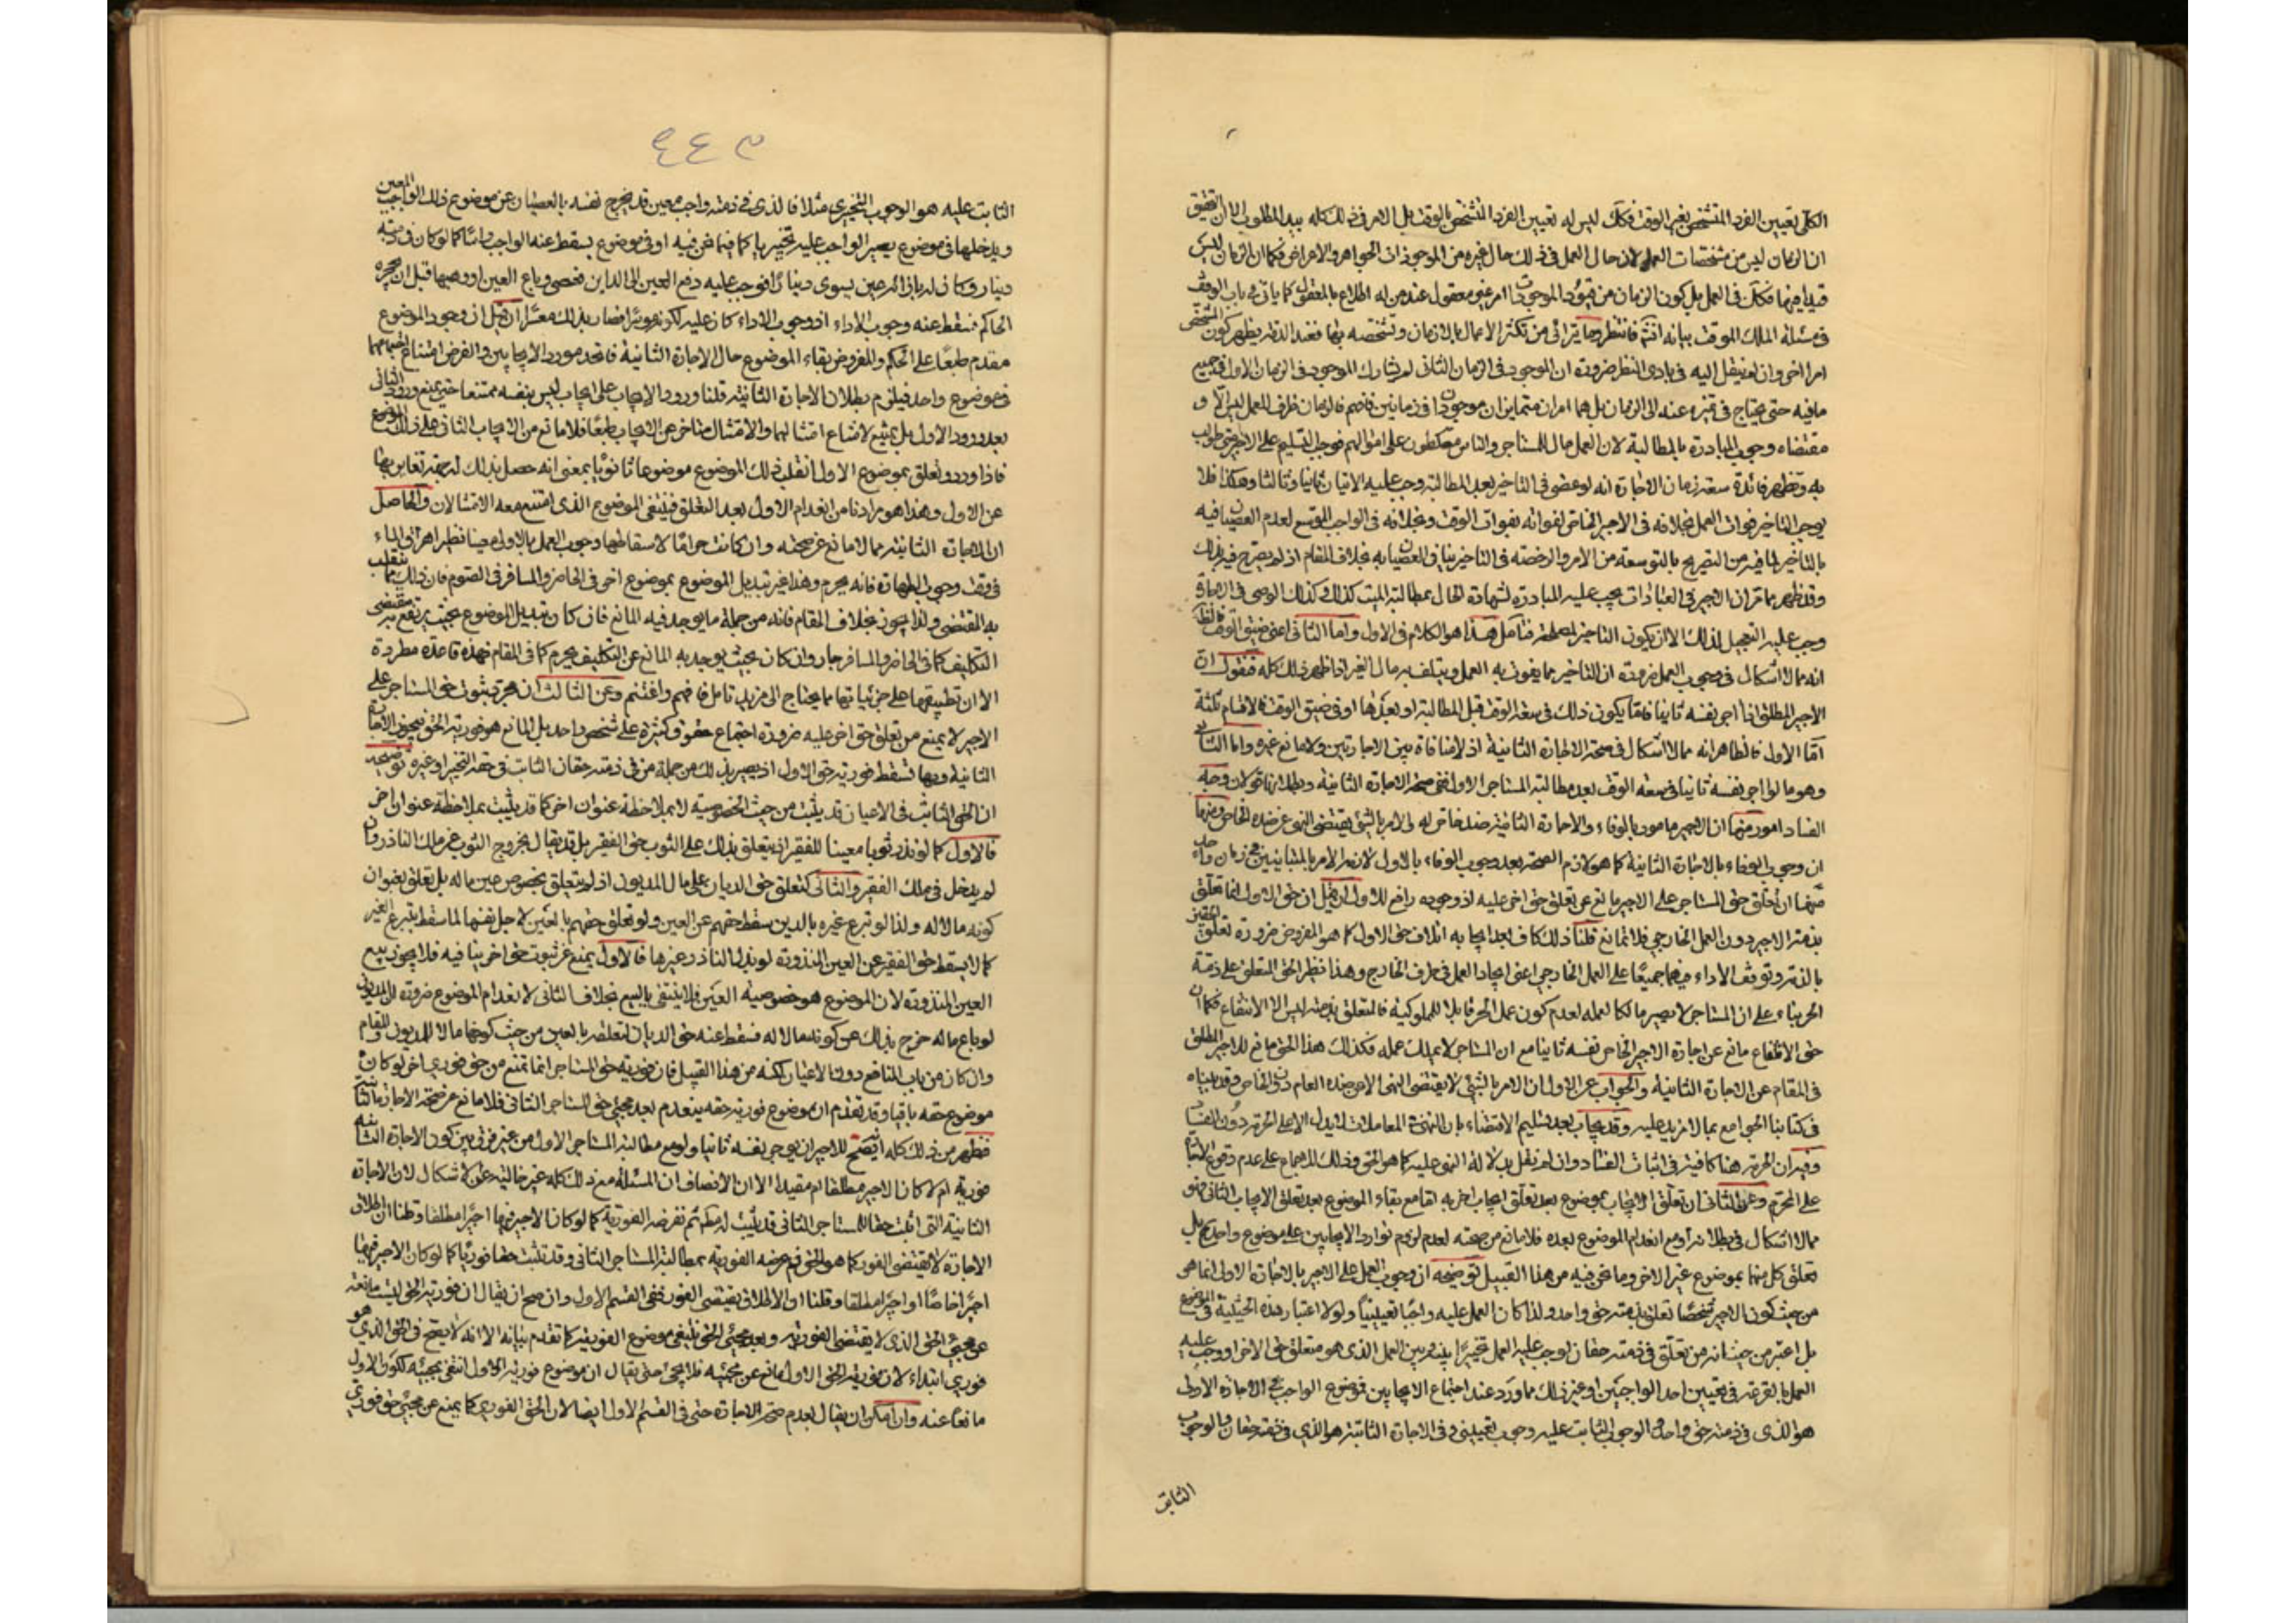 الكلى تعيين الفرد المتشخص بغير الوقت فكك ليس له تعيين الفرد المتشخص بالوقت بل الامر فى ذلك كله بيد المطلوب الا ان التحقيق
ان الزمان ليس من مشخصات العمل لان حال العمل فى ذلك حال غيره من الموجودات الجواهر والاعراض فكما ان الزمان ليس
قيدا فيها فكك فى العمل بل كون الزمان من قيود الموجودات امر غير معقول عند من له اطلاع بالمعقول كما ياتى فى باب الوقف
فى مسئلة الملك الموقت بيانه انش فانتظر وما يترائى من تكثر الاعمال بالازمان وتشخصه بها فعند النظر يظهر كون المشخص
امرا اخر وان لم ينتقل اليه فى بادى النظر ضرورة ان الموجود فى الزمان الثانى لم يشارك الموجود فى الزمان الاول فى جميع
مافيه حتى يحتاج فى تميزه عنه الى الزمان بل هما امران متمايزان موجودان فى زمانين فافهم فالزمان ظرف للعمل ليس الا و
مقتضاه وجوب المبادرة بالمطالبة لان العمل مال للمستاجر والناس مسلطون على اموالهم فوجب التسليم على الاجير متى طولب
به وتظهر فائدة سعة زمان الاجارة انه لو عصى فى التاخير بعد المطالبة وجب عليه الاتيان ثانيا وثالثا وهكذا فلا
يوجب التاخير فوات العمل بخلافه فى الاجير الخاص لفواته بفوات الوقت وبخلافه فى الواجب الموسع لعدم العصيان فيه
بالتاخير لما فيه من التصريح بالتوسعة من الامر والرخصة فى التاخير ينافى العصيان به بخلاف المقام اذ لم يصرح فيه بذلك
وقد ظهر مما مر ان الاجير فى العبادات يجب عليه المبادرة لشهادة الحال بمطالبة الميت كذلك وكذلك الوصى فى الاجارة
وجب عليه التعجيل لذلك الا ان يكون التاخير لمصلحة فتامل هذا هو الكلام فى الاول واما الثانى اعنى ضيق الوقت فالظ
انه مما لا اشكال فى وجوب العمل ضرورة ان التاخير مما يفوت به العمل ويتلف به مال الغير اذا ظهر ذلك كله فنقول ان
الاجير المطلق اذا اجر نفسه ثانيا فاما يكون ذلك فى سعة الوقت قبل المطالبة او بعدها او فى ضيق الوقت فالاقسام ثلثة
امّا الاول فالظاهر انه مما لا اشكال فى صحة الاجارة الثانية اذ لا منافاة بين الاجارتين ولا مانع غيره واما الثانى
وهو ما لو اجر نفسه ثانيا فى سعة الوقت بعد مطالبة المستاجر الاول ففى صحة الاجارة الثانية وبطلانها قولان وجه
الفساد امور منها ان الاجير مامور بالوفاء والاجارة الثانية ضد خاص له والامر بالشئ يقتضى النهى عن ضده الخاص ومنها
ان وجوب الوفاء بالاجارة الثانية كما هو لازم الصحة بعد وجوب الوفاء بالاول لازمه الامر بالمتباينين فى زمان واحد
منها ان تعلق حق المستاجر على الاجير مانع عن تعلق حق اخر عليه اذ وجوده رافع للاول لان قيل ان حق الاول انما تعلق
بذمة الاجير دون العمل الخارجى فلا تمانع قلنا ذلك كاف بعد ايجابه اتلاف حق الاول كما هو المفروض ضرورة تعلق الحقين
بالذمة وتوقف الاداء فيهما جميعا على العمل الخارجى اعنى ايجاد العمل فى ظرف الخارج وهذا نظير الحق المتعلق على ذمة
الحر بناء على ان المستاجر لا يصير مالكا لعمله لعدم كون عمل الحر قابلا للملوكية فالمتعلق بذمته ليس الا الانتفاع فكما ان
حق الانتفاع مانع عن اجارة الاجير الخاص نفسه ثانيا مع ان المستاجر لا يملك عمله فكذلك هذا الحق مانع للاجير المطلق
فى المقام عن الاجارة الثانية والجواب عن الاول ان الامر بالشئ لا يقتضى النهى الا عن ضده العام دون الخاص وقد بيناه
فى كتابنا الجوامع بما لا مزيد عليه وقد يجاب بعد تسليم الاقتضاء بان النهى فى المعاملات لا يدل الا على الحرمة دون الفساد
وفيه ان الحرمة هنا كافية فى اثبات الفساد وان لم نقل بدلالة النهى عليه كما هو الحق وذلك للاجماع على عدم وقوع الاجارة
على المحرم وعن الثانى ان تعلق الايجاب بموضوع بعد تعلق ايجاب اخر به امّا مع بقاء الموضوع بعد تعلق الايجاب الثانى فهو
مما لا اشكال فى بطلانه او مع انعدام الموضوع بعده فلا مانع من صحته لعدم لزوم توارد الايجابين على موضوع واحد بل
تعلق كل منهما بموضوع غير الاخر وما نحن فيه من هذا القبيل توضيحه ان وجوب العمل على الاجير بالاجارة الاولى انما هو
من حيث كون الاجير شخصًا تعلق بذمته حق واحد ولذا كان العمل عليه واجبًا تعيينيًا ولولا اعتبار هذه الحيثية فى الموضوع
بل اعتبر من حيث انه من تعلق فى ذمته حقان لوجب عليه العمل تخييرًا بينه وبين العمل الذى هو متعلق حق الاخر او وجب عليه
العمل بالقرعة فى تعيين احد الواجبين او غير ذلك مما ورد عند اجتماع الايجابين فموضوع الواجب فى الاجارة الاولى
هو الذى فى ذمته حق واحد والوجوب الثابت عليه وجوب تعيينى وفى الاجارة الثانية هو الذى فى ذمته حقان والوجوب
الثابت
٩٤٣
الثابت عليه هو الوجوب التخييرى مثلا فالذى فى ذمته واجب معين قد يخرج نفسه بالعصيان عن موضوع ذلك الواجب المعين
ويدخلها فى موضوع يصير الواجب عليه تخييريا كما فيما نحن فيه او فى موضوع يسقط عنه الواجب راسًا كما لو كان فى ذمته
دينار وكان له بازائه عين يسوى دينارًا فوجب عليه دفع العين الى الداين فعصى وباع العين او وهبها قبل ان يحجره
الحاكم فسقط عنه وجوب الاداء اذ وجوب الاداء كان عليه لكونه موسرًا فصار بذلك معسرًا ان قيل ان وجود الموضوع
مقدم طبعًا على الحكم والمفروض بقاء الموضوع حال الاجارة الثانية فاتحد مورد الايجابين والفرض امتناع اجتماعهما
فى موضوع واحد فيلزم بطلان الاجارة الثانية قلنا ورود الايجاب على ايجاب ليس بنفسه ممتنعا حتى يمنع ورود الثانى
بعد ورود الاول بل يمتنع لامتناع امتثالهما والامتثال متاخر عن الايجاب طبعًا فلا مانع من الايجاب الثانى على ذلك الموضوع
فاذا ورد وتعلق بموضوع الاول انقلب ذلك الموضوع موضوعا ثانويًا بمعنى انه حصل بذلك له جهة تغاير بها
عن الاول وهذا هو مرادنا من انعدام الاول بعد التعلق فينتفى الموضوع الذى امتنع معه الامتثالان والحاصل
ان الاجارة الثانية مما لا مانع عن صحته وان كانت حرامًا لاسقاطها وجوب العمل بالاولى عينا نظير اهراق الماء
فى وقت وجوب الطهارة فانه يحرم وهذا غير تبديل الموضوع بموضوع اخر فى الحاضر والمسافر فى الصوم فان ذلك مما ينقلب
به المقتضى ولذا يجوز بخلاف المقام فانه من جملة ما يوجد فيه المانع فان كان تبديل الموضوع بحيث يرتفع به مقتضى
التكليف كما فى الحاضر والمسافر جاز وان كان بحيث يوجد به المانع عن التكليف يحرم كما فى المقام فهذه قاعدة مطردة
الا ان تطبيقها على جزئياتها مما يحتاج الى مزيد تامل فافهم واغتنم وعن الثالث ان مجرد ثبوت حق المستاجر على
الاجير لا يمنع من تعلق حق اخر عليه ضرورة اجتماع حقوق كثيرة على شخص واحد بل المانع هو فورية الحق فيجوز الاجارة
الثانية وبها تسقط فورية حق الاول اذ يصير بذلك من جملة من فى ذمته حقان الثابت فى حقه التخيير او غيره توضيحه
ان الحق الثابت فى الاعيان قد يثبت من حيث الخصوصية لا بملاحظة عنوان اخر كما قد يثبت بملاحظة عنوان اخر
فالاول كما لو نذر ثوبا معينا للفقير اذ يتعلق بذلك على الثوب حق الفقير بل قد يقال بخروج الثوب عن ملك الناذر وان
لم يدخل فى ملك الفقير والثانى كتعلق حق الديان على مال المديون اذ لم يتعلق بخصوص عين ماله بل تعلق بعنوان
كونه مالا له ولذا لو تبرع غيره بالدين سقط حقهم عن العين ولو تعلق حقهم بالعين لاجل نفسها لما سقط بتبرع الغير
كما لا يسقط حق الفقير عن العين المنذورة لو بذل الناذر غيرها فالاول يمنع عن ثبوت حق اخر ينافيه فلا يجوز بيع
العين المنذورة لان الموضوع هو خصوصية العين فلا ينتفى بالبيع بخلاف الثانى لانعدام الموضوع ضرورة ان المديون
لو باع ماله خرج بذلك عن كونه مالا له فسقط عنه حق الديان لتعلقه بالعين من حيث كونها مالا للمديون والمقام
وان كان من باب المنافع دون الاعيان لكنه من هذا القبيل فان فورية حق المستاجر انما تمنع من حق فورى اخر لو كان
موضوع حقه باقيا وقد تقدم ان موضوع فورية حقه ينعدم بعد مجئ حق المستاجر الثانى فلا مانع عن صحة الاجارة الثانية
فظهر من ذلك كله انه يصح للاجير ان يوجر نفسه ثانيا ولو مع مطالبة المستاجر الاول من غير فرق بين كون الاجارة الثانية
فورية ام لا كان الاجير مطلقا ام مقيدا الا ان الانصاف ان المسئلة مع ذلك كله غير خالية عن الاشكال لان الاجارة
الثانية التى اثبتت حقا للمستاجر الثانى قد يثبت له حكم ثم تعرضه الفورية كما لو كان الاجير فيها اجيرًا مطلقا وقلنا ان اطلاق
الاجارة لا يقتضى الفور كما هو الحق ثم عرضه الفورية بمطالبة المستاجر الثانى وقد تثبت حقا فوريًا كما لو كان الاجير فيها
اجيرًا خاصًا او اجيرًا مطلقا وقلنا ان الاطلاق يقتضى الفور ففى القسم الاول وان صح ان يقال ان فورية الحق ليست مانعة
عن مجئ الحق الذى لا يقتضى الفورية وبعد مجئ الحق ينتفى موضوع الفورية كما تقدم بيانه الا انه لا يصح فى الحق الذى هو
فورى ابتداء لان فورية الحق الاول مانع عن مجيئه فلا يجئ حتى يقال ان موضوع فورية الاول انتفى بمجيئه لكون الاول
مانعًا عنه وان امكن ان يقال بعدم صحة الاجارة حتى فى القسم الاول ايضا لان الحق الفورى كما يمنع عن مجئ حق فورى